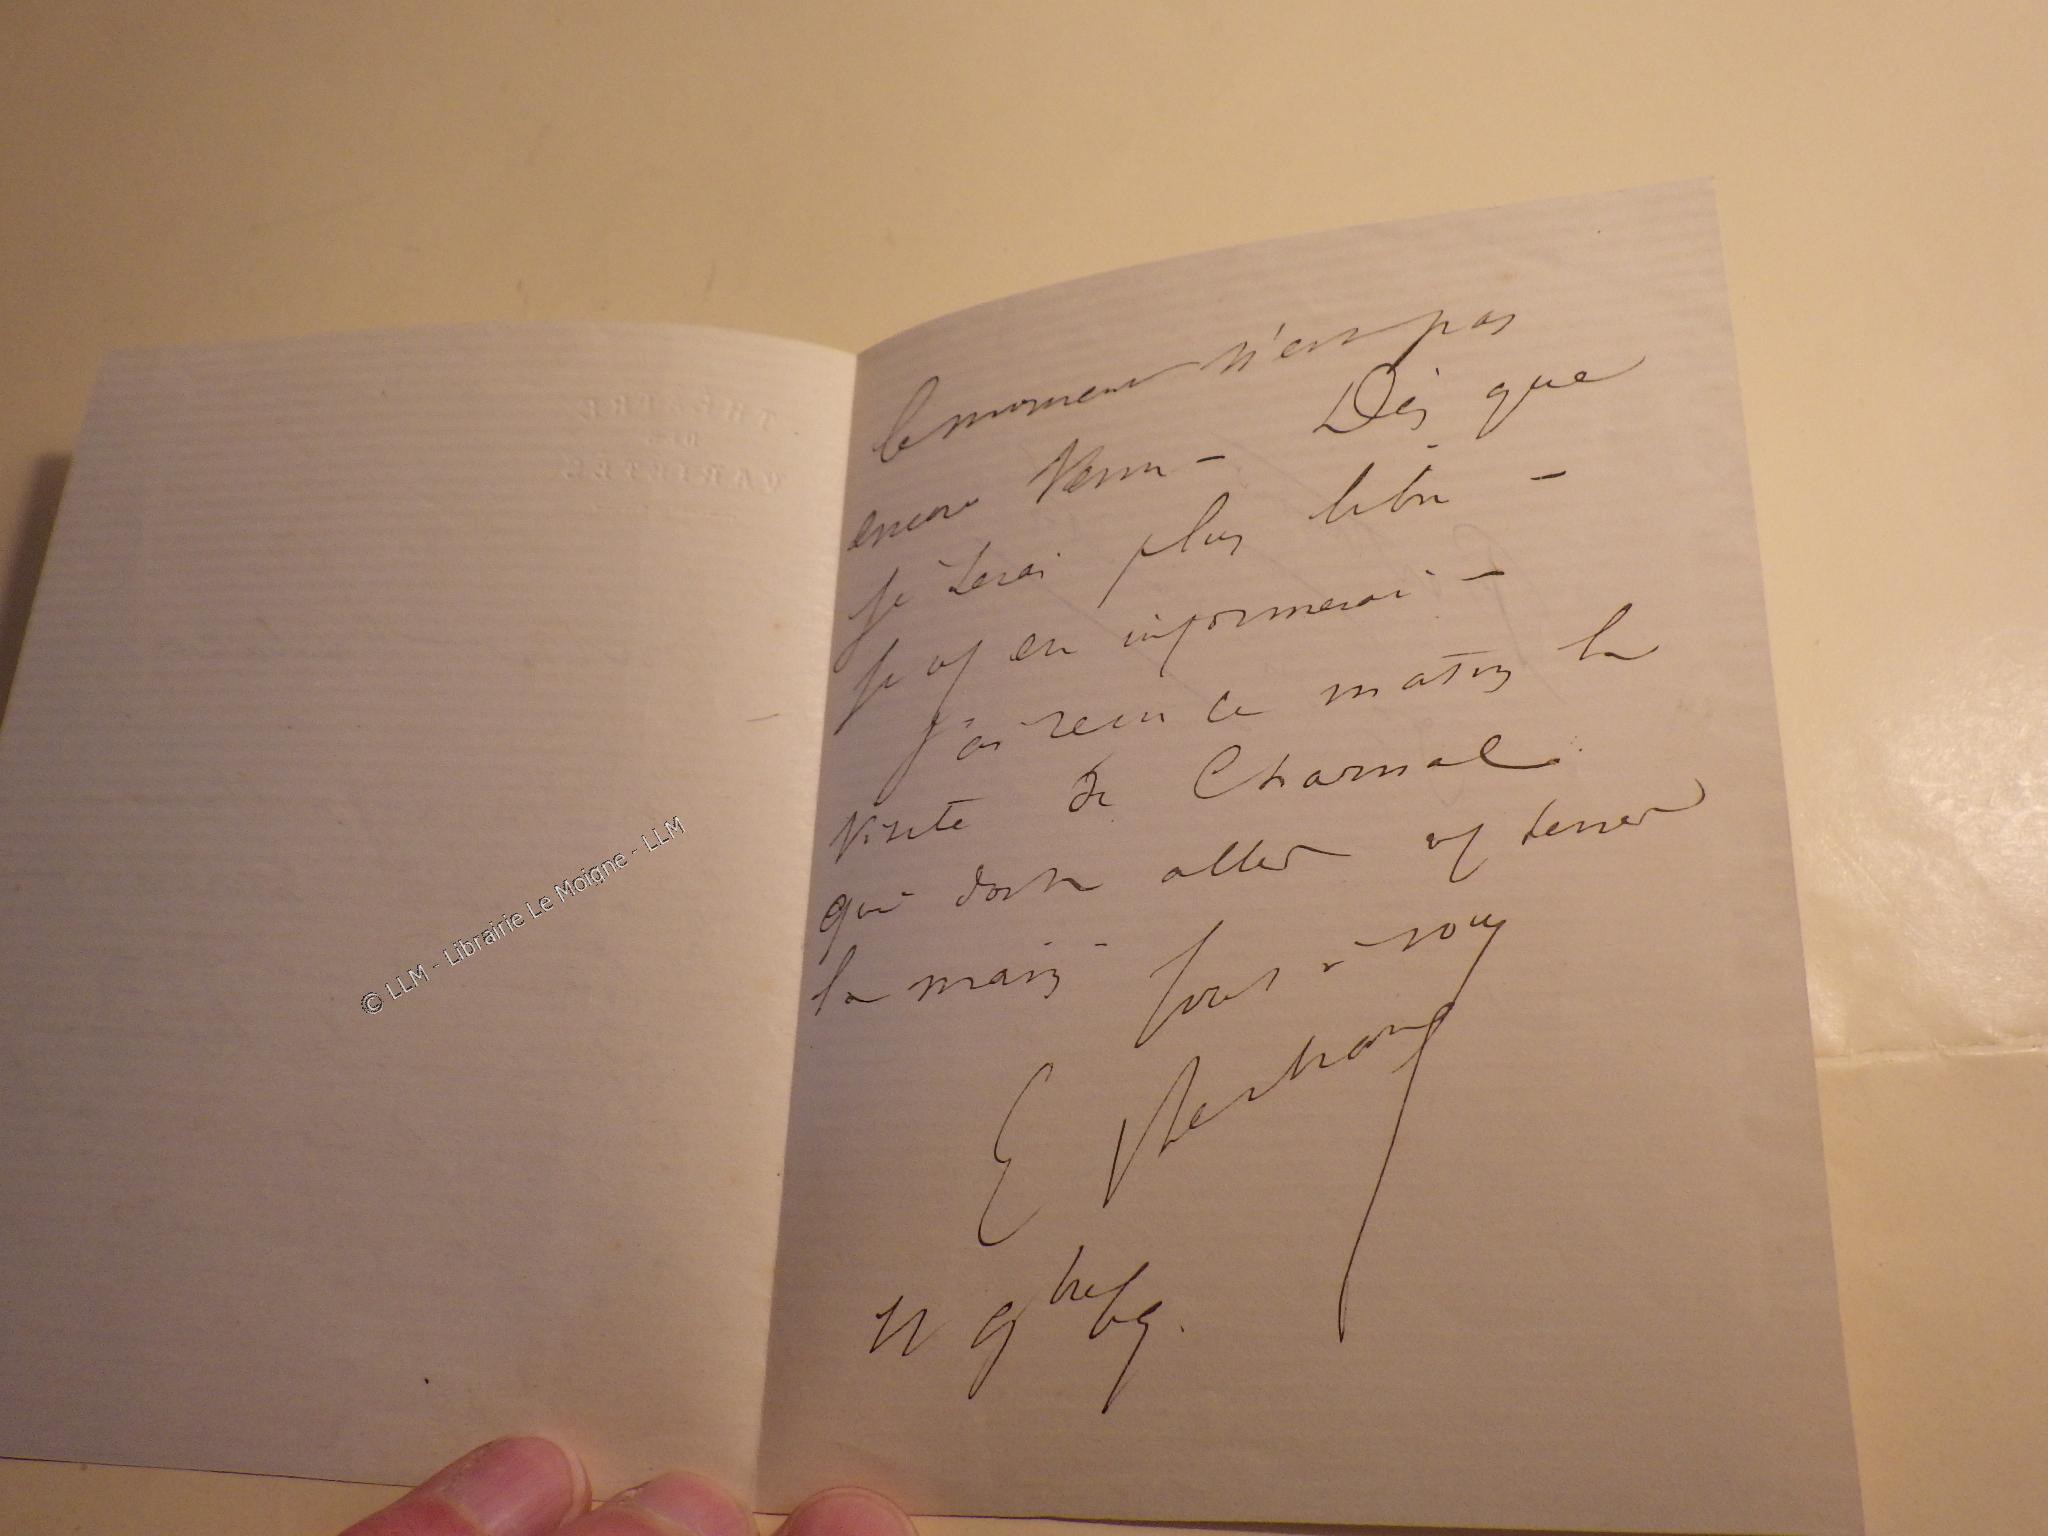 THÉATRE
DES
VARIÉTÉS
© LLM - Librairie Le Moigne - LLM
le moment n'est pas
encore venu - Dès que
je serai plus libre -
je vs en informerai -
j'ai reçu ce matin la
visite de Charnal
qui doit aller vs serrer
la main - Tout à vous
E Bertrand
11 9bre 69.